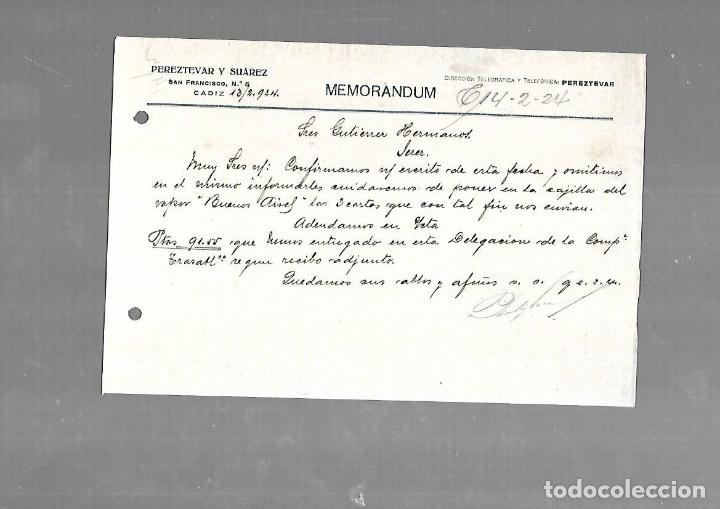 PEREZTEVAR Y SUÁREZ
SAN FRANCISCO, N.º 5
CADIZ 13/2.924.
MEMORANDUM
DIRECCIÓN TELEGRÁFICA Y TELEFÓNICA: PEREZTEVAR
C 14-2-24
Sres Gutierrez Hermanos.
Jerez.
Muy Sres n/: Confirmamos n/ escrito de esta fecha y omitimos
en el mismo informarles cuidaremos de poner en la cajilla del
vapor "Buenos Aires" las 2 cartas que con tal fin nos envian.
Adeudamos en Cta
Ptas. 91.55 que hemos entregado en esta Delegacion de la Comp.ª
Trasatl.ca segun recibo adjunto.
Quedamos sus attos y afmos s. s. q e. s. m.
todocoleccion
todocoleccion.net